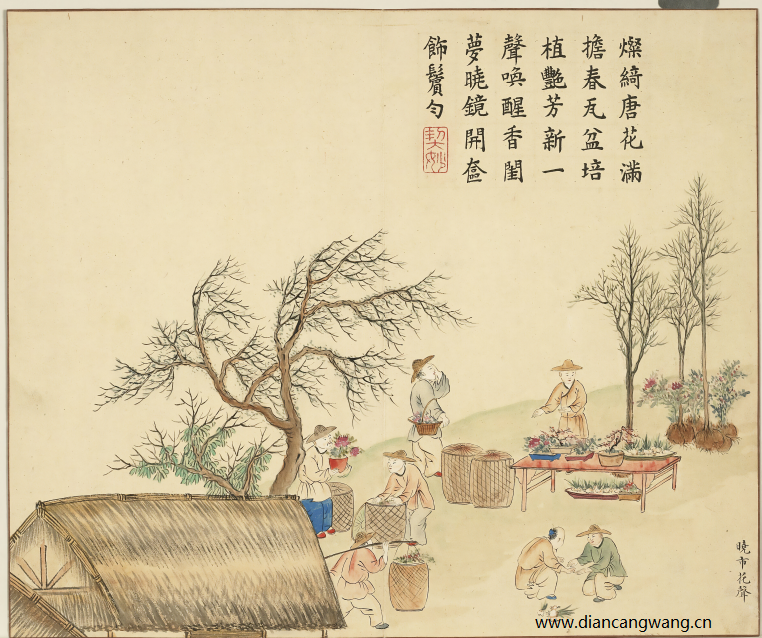 燦綺唐花滿
擔春瓦盆培
植艷芳新一
聲喚醒香閨
夢曉鏡開奩
飾鬢勻
曉市花聲
www.diancangwang.cn